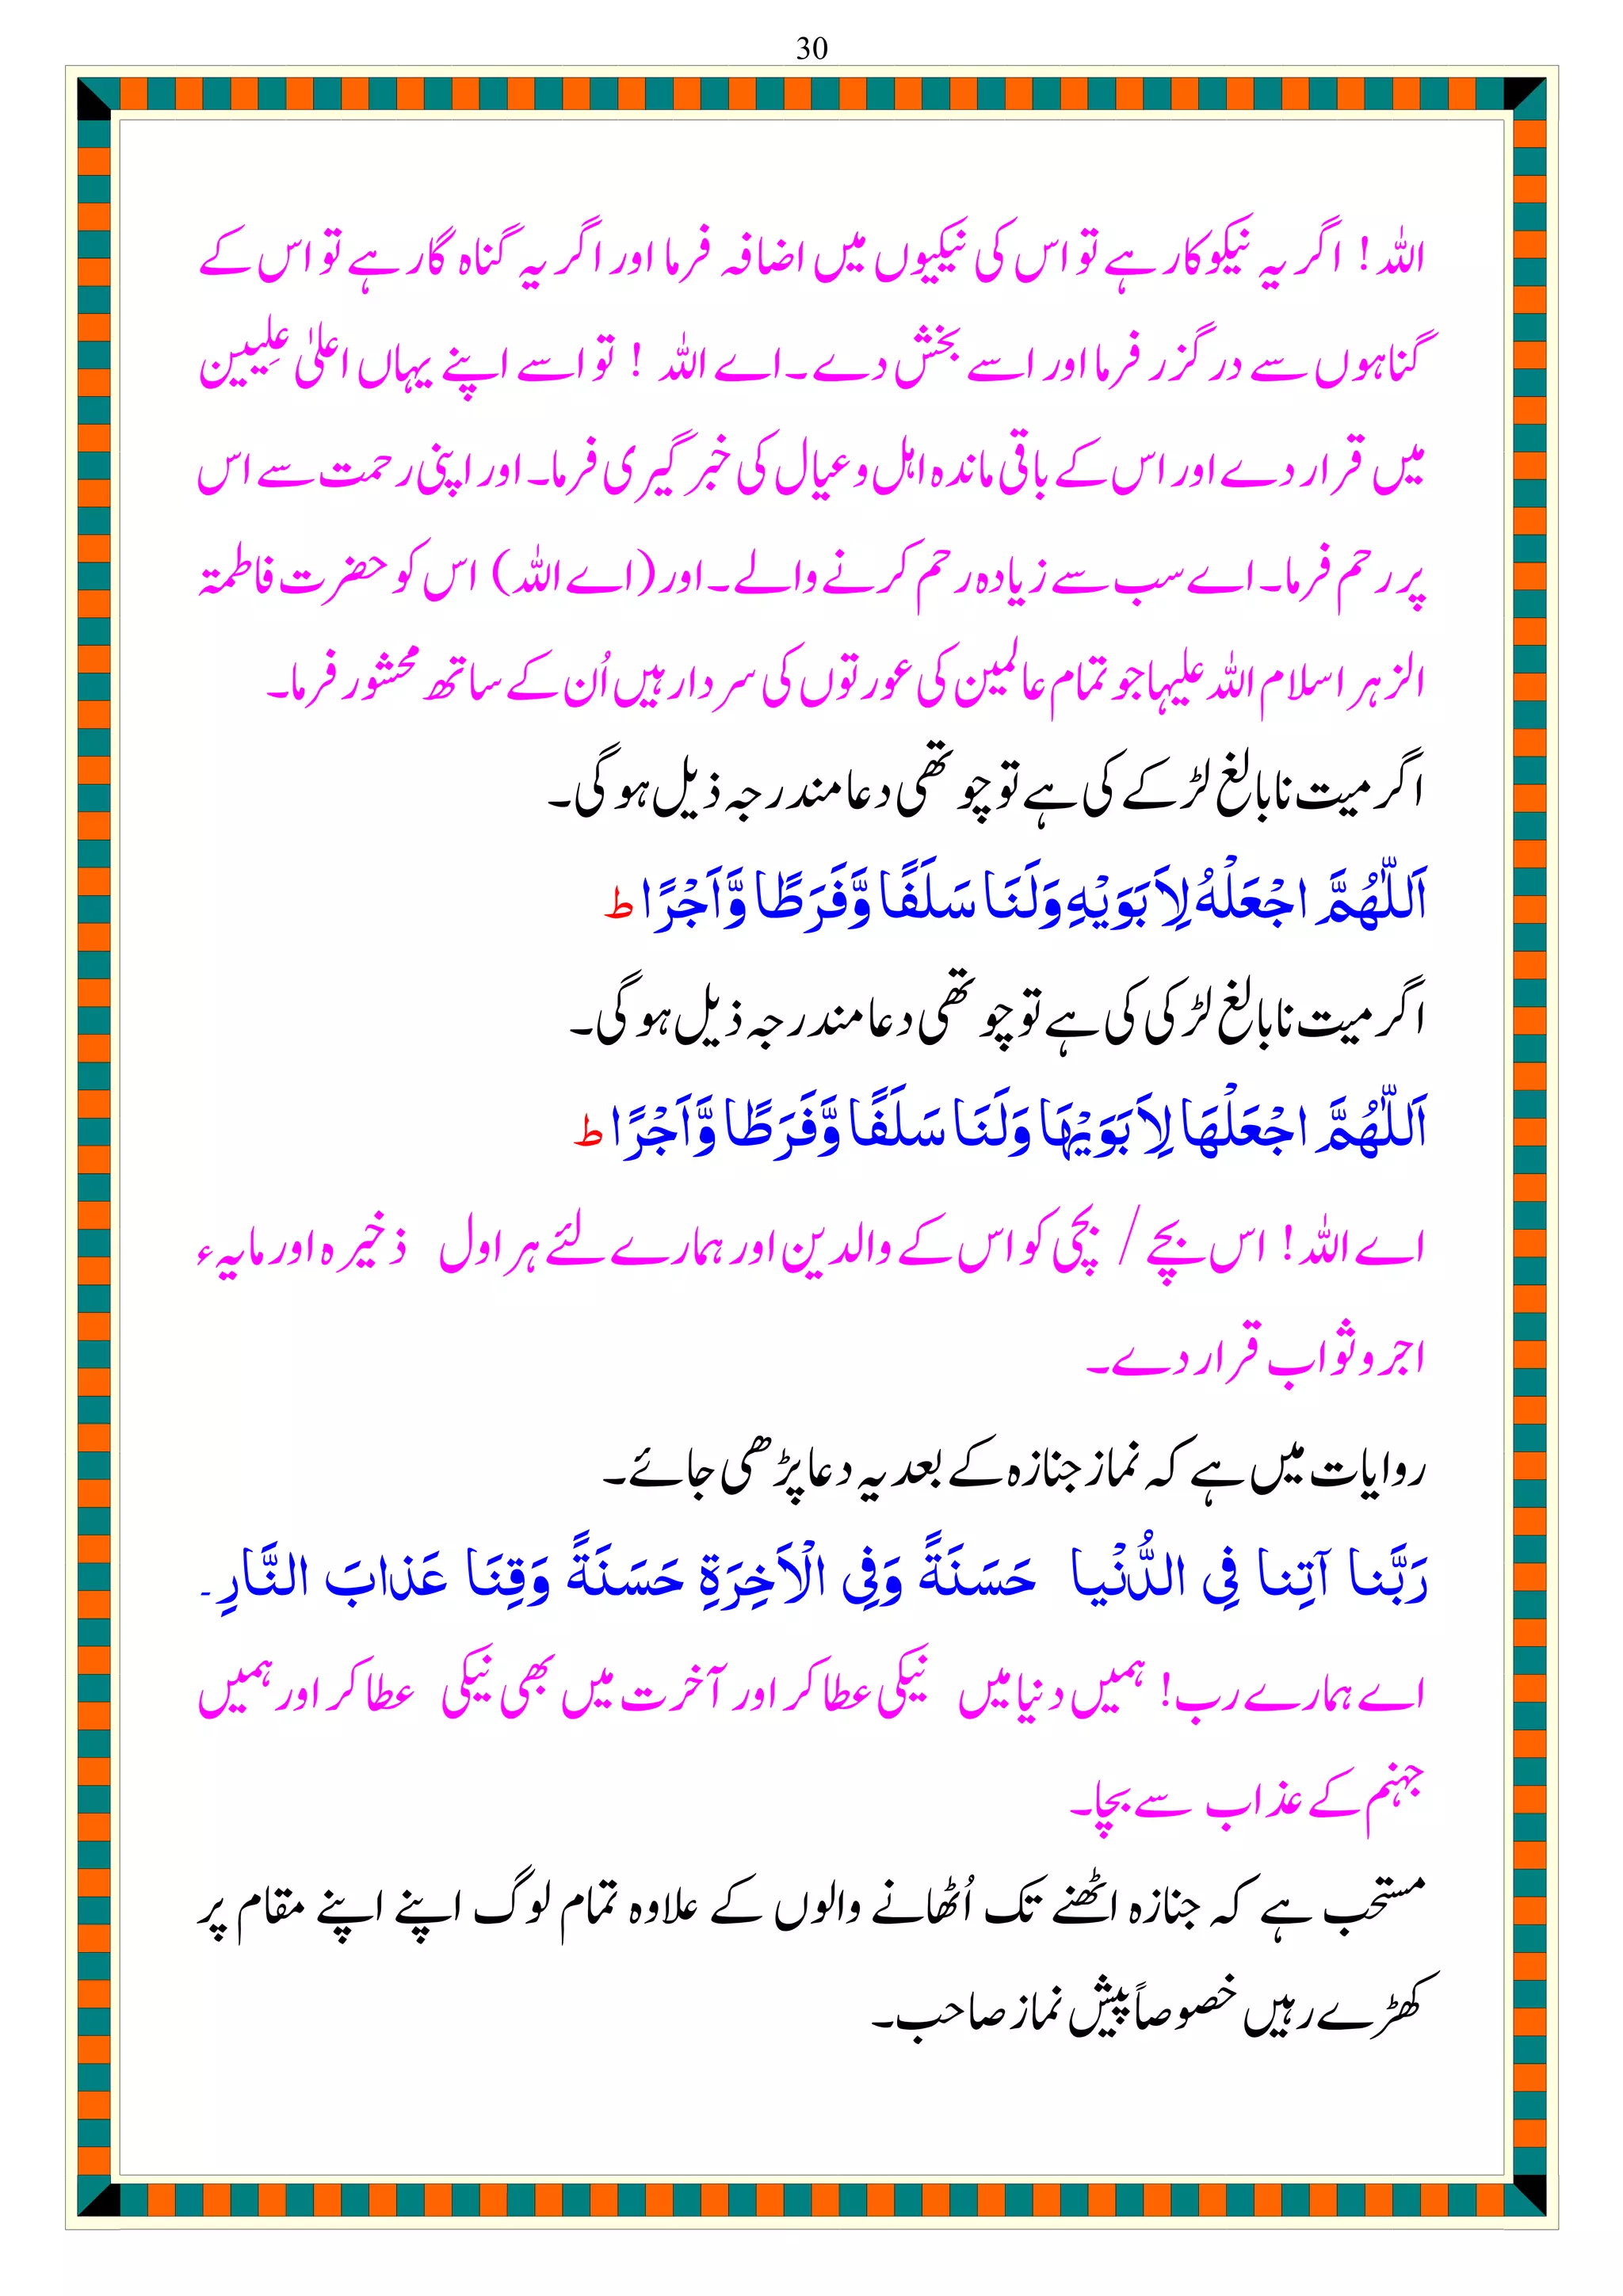 30
اللہ ! اگر یہ نیکو کار ہے تو اس کی نیکیوں میں اضافہ فرما اور اگر یہ گناہ گار ہے تو اس کے
گناہوں سے درگزر فرما اور اسے بخش دے۔ اے اللہ ! تو اسے اپنے یہاں اعلیٰ عِلیین
میں قرار دے اور اس کے باقی ماندہ اہل و عیال کی خبر گیری فرما۔ اور اپنی رحمت سے اس
پر رحم فرما۔ اے سب سے زیادہ رحم کرنے والے۔ اور (اے اللہ) اس کو حضرت فاطمۃ
الزہرا سلام اللہ علیہا جو تمام عالمین کی عورتوں کی سردار ہیں اُن کے ساتھ محشور فرما۔
اگر میت نابالغ لڑکے کی ہے تو چوتھی دعا مندرجہ ذیل ہوگی۔
اَللّٰهُمَّ اجْعَلْهُ لِاَبَوَيْهِ وَلَنَا سَلَفًا وَّفَرَطًا وَّاَجْرًا ط
اگر میت نابالغ لڑکی کی ہے تو چوتھی دعا مندرجہ ذیل ہوگی۔
اَللّٰهُمَّ اجْعَلْهَا لِاَبَوَيْهَا وَلَنَا سَلَفًا وَّفَرَطًا وَّاَجْرًا ط
اے اللہ ! اس بچے / بچی کو اس کے والدین اور ہمارے لئے ہر اول ذخیرہ اور مایہء
اجر و ثواب قرار دے۔
روایات میں ہے کہ نماز جنازہ کے بعد یہ دعا پڑھی جائے۔
رَبَّنا آتِنا فِي الدُّنْيا حَسَنَةً وَفِي الْاَخِرَةِ حَسَنَةً وَقِنَا عَذابَ النَّارِ۔
اے ہمارے رب ! ہمیں دنیا میں نیکی عطا کر اور آخرت میں بھی نیکی عطا کر اور ہمیں
جہنم کے عذاب سے بچا۔
مستحب ہے کہ جنازہ اٹھنے تک اُٹھانے والوں کے علاوہ تمام لوگ اپنے اپنے مقام پر
کھڑے رہیں خصوصاً پیش نماز صاحب۔